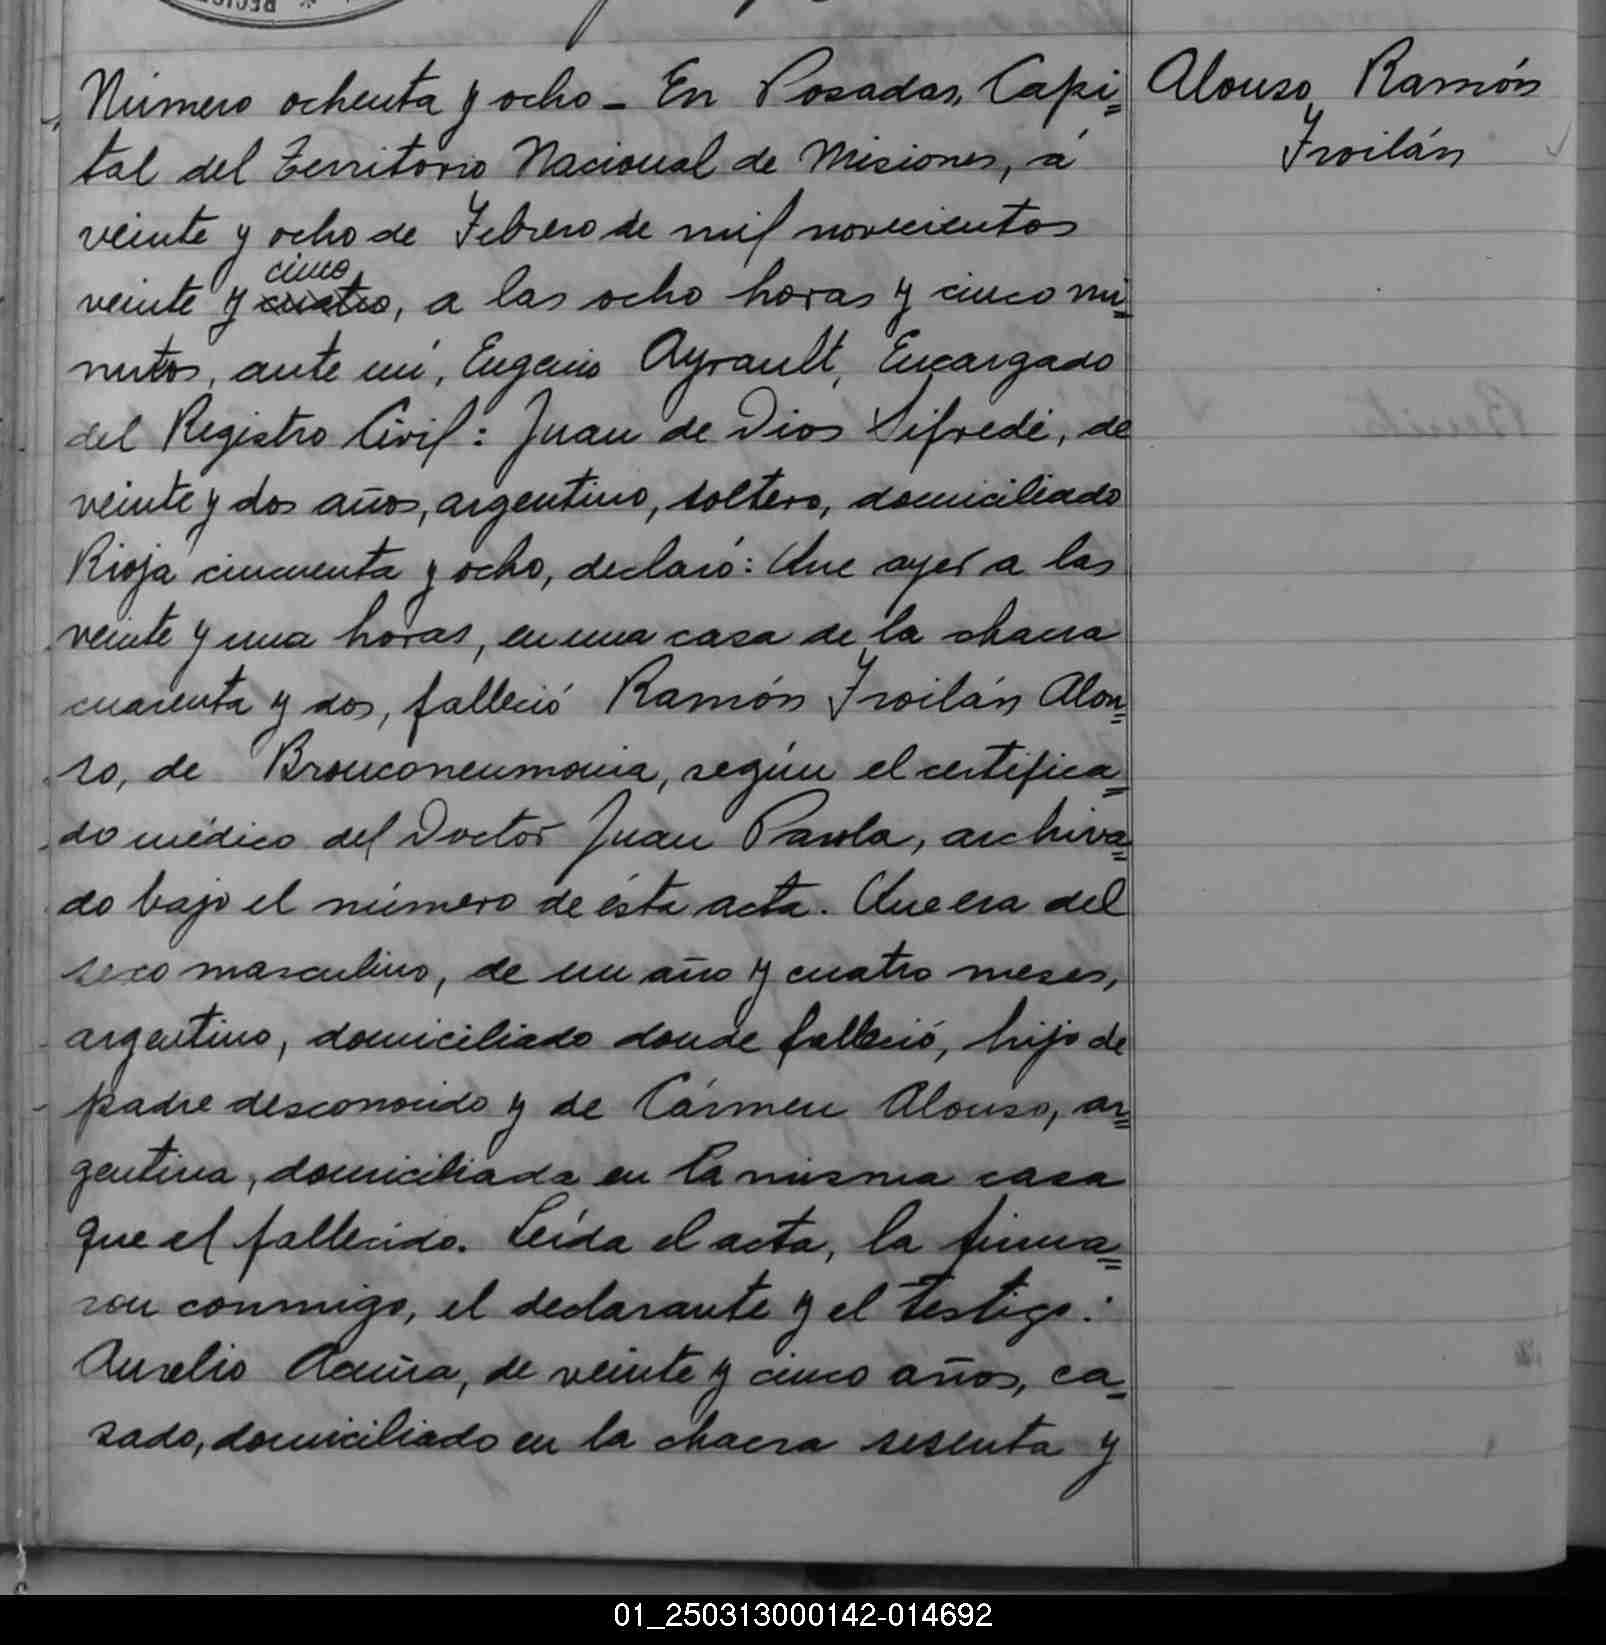 Número ochenta y ocho - En Posadas, Capi=
tal del Territorio Nacional de Misiones, á
veinte y ocho de Febrero de mil novecientos
cinco
veinte y cuatro, a las ocho horas y cinco mi=
nutos, ante mí, Eugenio Ayrault, Encargado
del Registro Civil: Juan de Dios Sifredi, de
veinte y dos años, argentino, soltero, domiciliado
Rioja cincuenta y ocho, declaró: Que ayer a las
veinte y una horas, en una casa de la chacra
cuarenta y dos, falleció Ramón Froilán Alon=
so, de Bronconeumonia, según el certifica=
do médico del Doctor Juan Parola, archiva=
do bajo el número de ésta acta. Que era del
sexo masculino, de un año y cuatro meses,
argentino, domiciliado donde falleció, hijo de
padre desconocido y de Cármen Alonso, ar=
gentina, domiciliada en la misma casa
que el fallecido. Leída el acta, la firma=
ron conmigo, el declarante y el testigo:
Aurelio Acuña, de veinte y cinco años, ca=
sado, domiciliado en la chacra sesenta y
Alonso, Ramón
Froilán
01_250313000142-014692